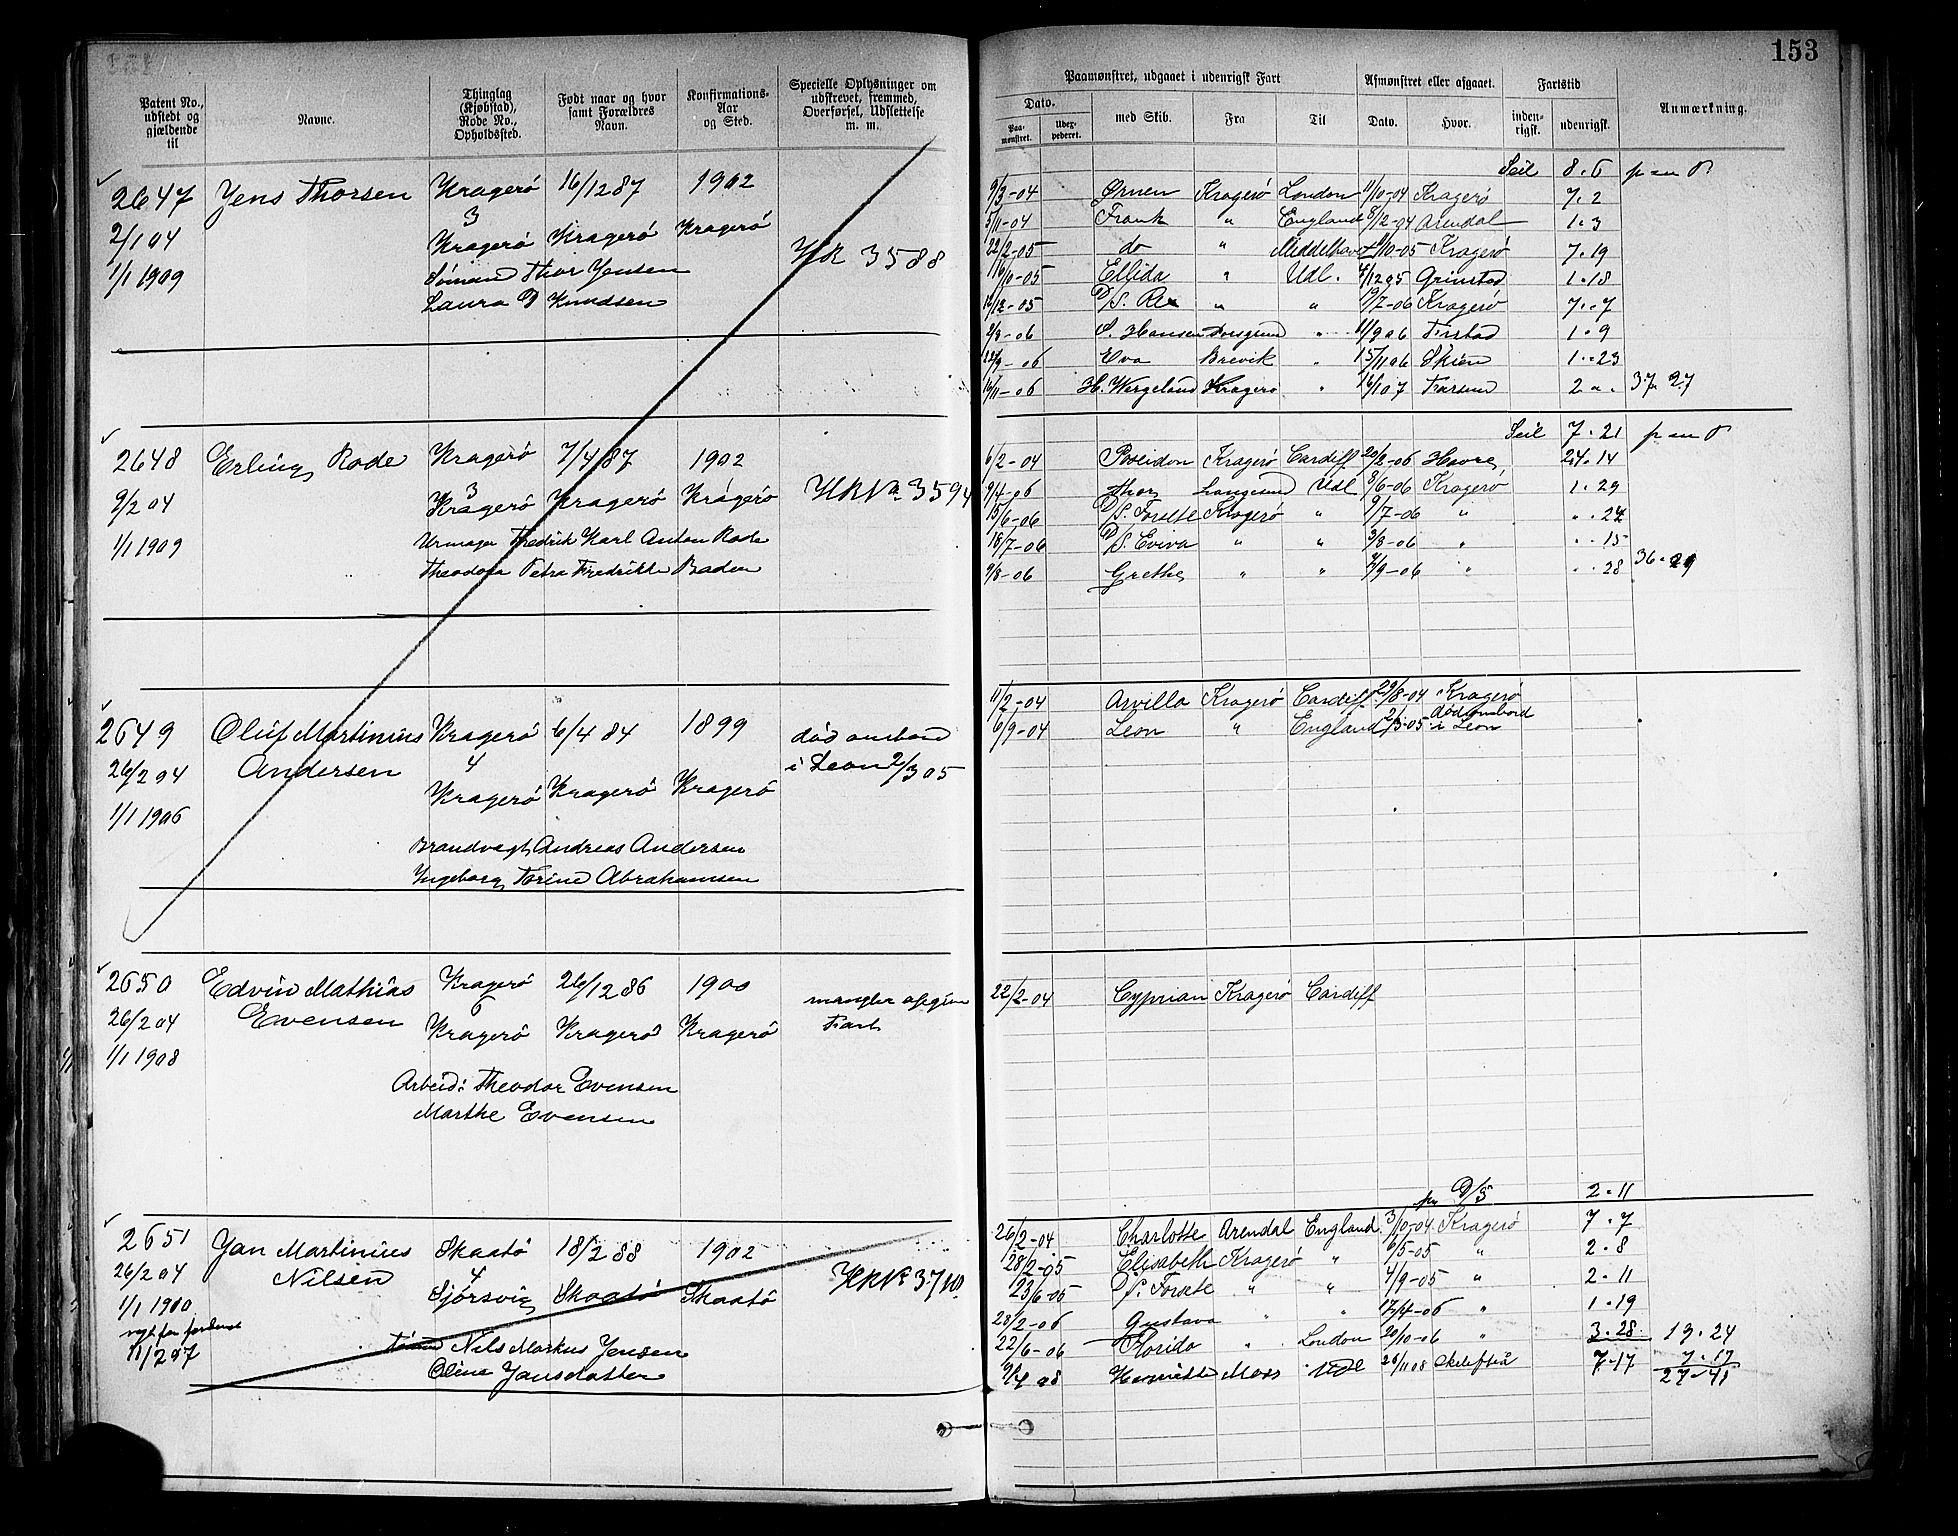 153
Patent No., udstedt og gjældende til
Navne.
Thinglag (Kjøbstad), Rode No., Opholdssted.
Født naar og hvor samt Forældres Navn.
Konfirmations-Aar og Sted.
Specielle Oplysninger om udskrevet, fremmed, Overførsel, Udslettelse m. m.
Paamønstret, udgaaet i udenrigsk Fart
Afmønstret eller afgaaet.
Fartstid
Anmærkning.
Dato.
Paa-mønstret.
Udex-pederet.
med Skib.
Fra
Til
Dato.
Hvor.
inden-rigsk.
udenrigsk.
2647 Jens Thorsen Kragerö 16/12 87 1902
3
2/1 04 Kragerö Kragerö Kragerö
HR 3588
1/1 1909 Sömand Thor Jensen
Laura D Knudsen
Seil 8.6
9/3-04 Ørnen Kragerö London 11/10-04 Kragerö 7.2
5/11-04 Frank " England 8/12-04 Arendal 1.3
22/2-05 do " Middelhavet 9/10-05 Kragerö 7.19
16/10-05 Ellida " Udl. 4/12 05 Grimstad 1.18
12/12-05 D/S. Rex " " 19/7-06 Kragerö 7.7
9/8-06 S. Hansen Porsgrund " 11/9 06 1.9
22/9-06 Eva Brevik " 15/11 06 Skien 1.23
16/11-06 H. Wergeland Kragerö " 16/1 07 Farsund 2 " . 37.27
2648 Erling Rode Kragerö 7/4 87 1902
3
9/2 04 Kragerö Kragerö Kragerö
HR No 3594
1/1 1909 Urmager Fredrik Karl Anton Rode
Theodora Petra Fredrikke Baden
Seil 7.21
6/2-04 Poseidon Kragerö Cardiff 20/2-06 Havre 24.14
9/4-06 Thor Langesund Udl 8/6-06 Kragerö 1.29
15/6-06 D/S. Forsete Kragerö " 9/7-06 " ".24
18/7-06 D/S. Eviva " " 3/8-06 " ".15
9/8-06 Grethe " " 7/9-06 " ".28 36.29
2649 Oluf Martinius Kragerö 6/4 84 1899
Andersen 4
26/2 04 Kragerö Kragerö Kragerö
1/1 1906
död ombord
i Leon 2/3 05
Brandvagt Andreas Andersen
Ingeborg Torine Abrahamsen
11/2-04 Arvilla Kragerö Cardiff 29/8-04 Kragerö
6/9-04 Leon " England 2/3-05 död ombord i Leon
2650 Edvin Mathias Kragerö 26/12 86 1900
Evensen 6
26/2 04 Kragerö Kragerö Kragerö
1/1 1908
mangler opgiven
Fart
Arbeid: Theodor Evensen
Marthe Evensen
22/2-04 Cyprian Kragerö Cardiff
2651 Jan Martinius Skaatö 18/2 88 1902
Nilsen 4
26/2 04 Sjörsvig Skaatö Skaatö
HR No 3710
1/1 1910
11/2 97
Nils Markus Jensen
Oline Jansdatter
pr D/S 2.11
26/2-04 Charlotte Arendal England 3/10-04 Kragerö 7.7
28/2-05 Elisabeth Kragerö " 6/5-05 " 2.8
23/6-05 D/S. Forsete " " 4/9-05 " 2.11
28/2-06 Gustava " " 17/4-06 " 1.19
22/6-06 Florida " London 20/10-06 " 3.28 19.24
9/4 08 Henriette Moss Udl 26/11 08 Skellefteå 7.17 7.17
27.41